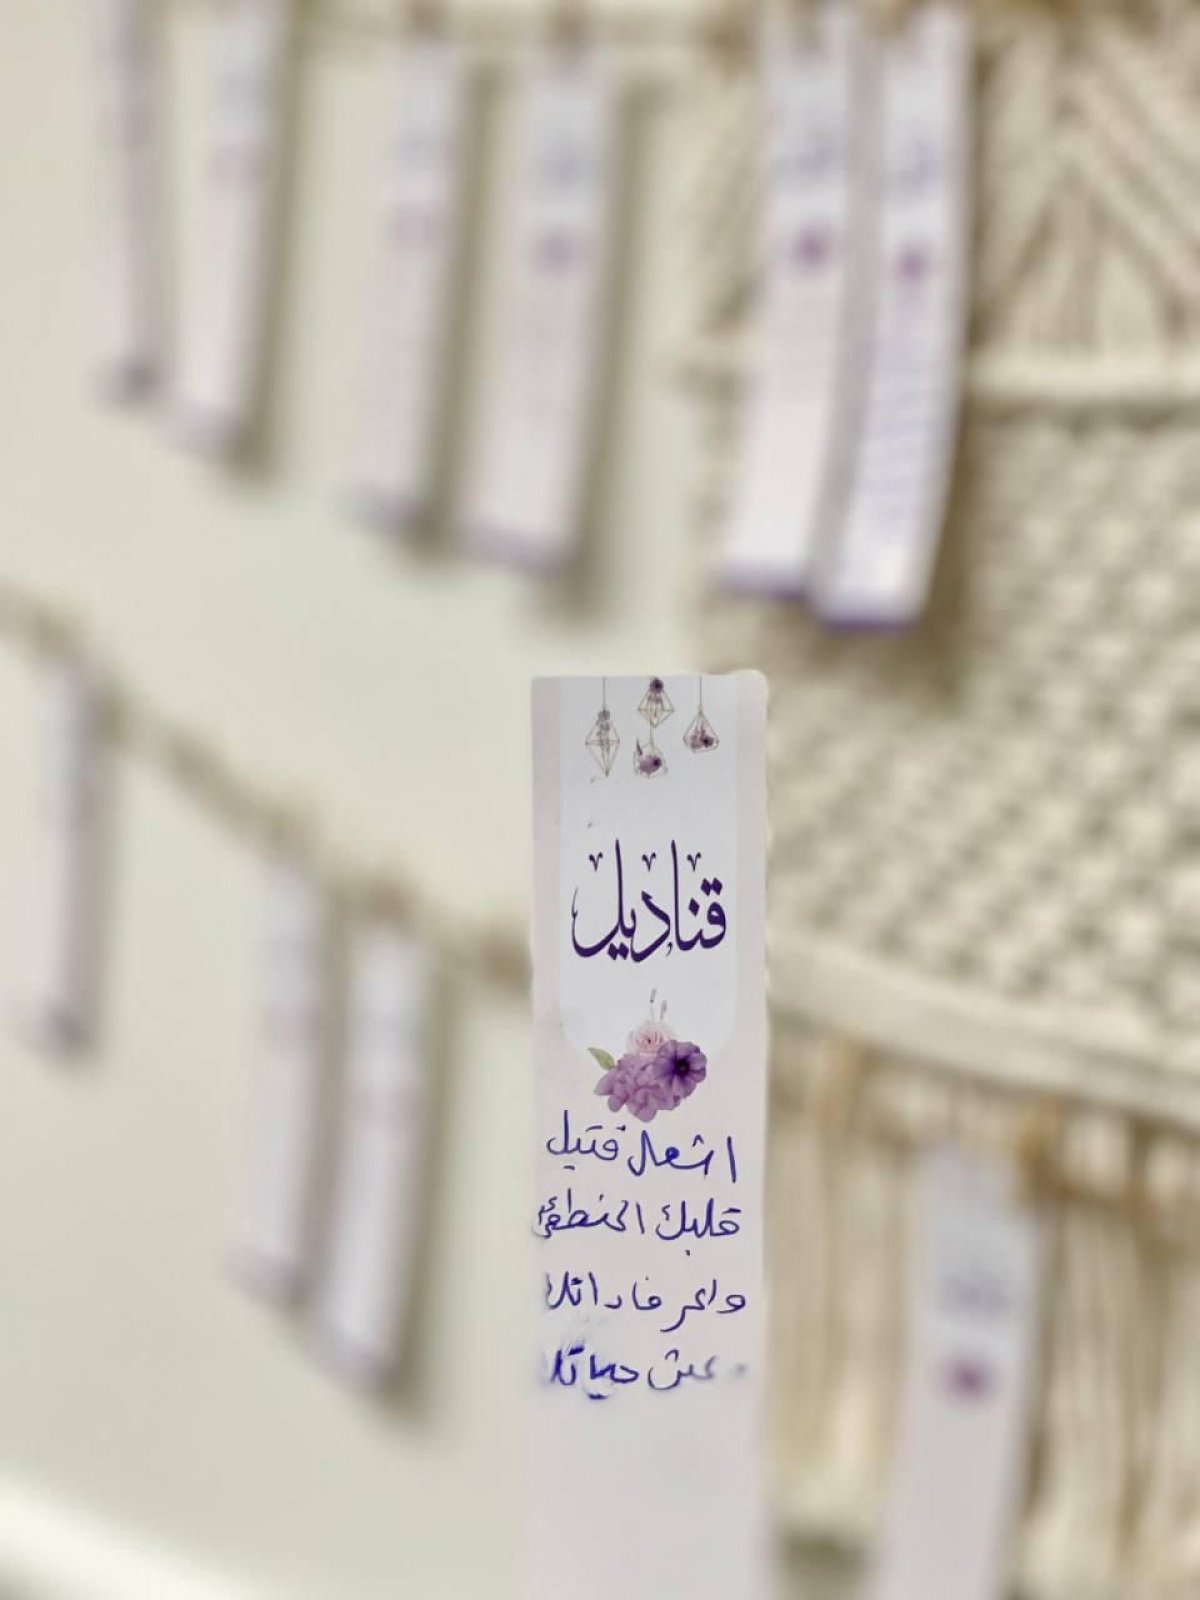 قناديل
اشعال فتيل
قلبك المنطفئ
واعر فاداتك
وعش حياتك